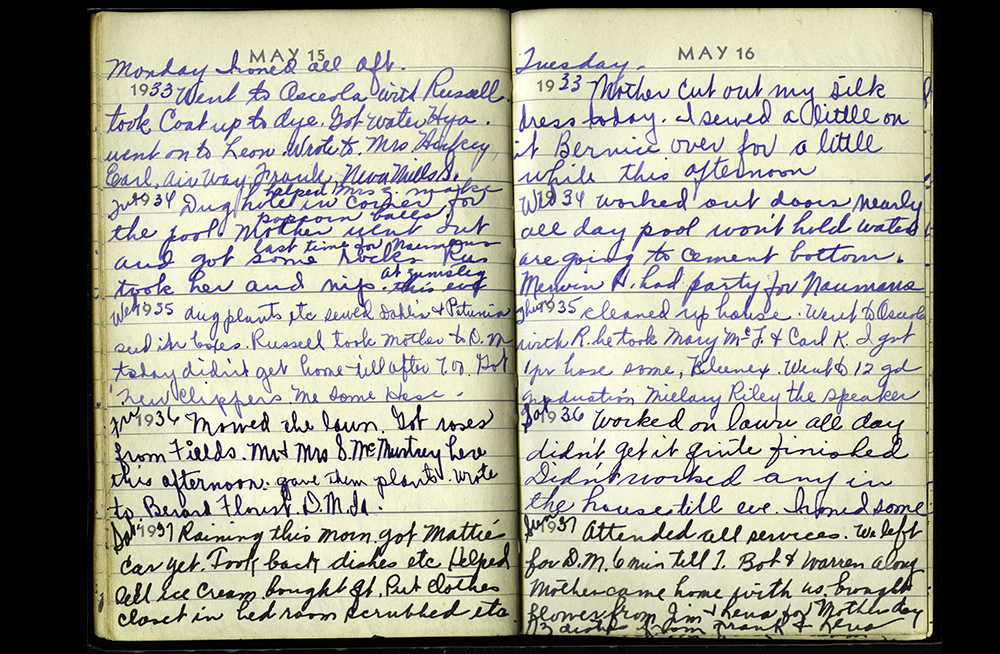 MAY 15
Monday Ironed all aft.
1933 Went to Osceola with Russell.
took Coat up to dye. Got water Hya.
went on to Leon. Wrote to Mrs
Earl, Air Way, Frank, Neva Mills S.
helped Mrs Z. make
1934 Dug hole in corner for
popcorn balls.
the pool. Mother went out
last time for Naumans
and got some rocks Rus
at
took her and nip. this eve
We 1935 dug plants etc sewed Dahlia & Petunia
sed in boxes. Russell took Mother to D.M
today didn't get home till after 7.00. Got
new Clippers. Me some Hose.
Fri 1936 Mowed the lawn. Got roses
from Fields. Mr & Mrs S. McMurtrey here
this afternoon. gave them plants. Wrote
to Florist. D.M. Ia.
Sat 1937 Raining this morn. got Mattie's
car yet. Took back dishes etc Helped
sell ice cream. bought qt. Put clothes
closet in bed room scrubbed etc
MAY 16
Tuesday.
1933 Mother cut out my silk
dress today. I sewed a little on
it Bernice over for a little
while this afternoon
We 1934 worked out doors nearly
all day pool won't hold water
are going to cement bottom.
Mervin H. had party for Naumans
Thur 1935 cleaned up house. Went to Osceola
with R. he took Mary McF. & Carl K. I got
1 pr hose some, Kleenex. Went to 12 gd
graduation Riley the speaker
Sat 1936 Worked on lawn all day
didn't get it quite finished
Didn't worked any in
the house till eve. Ironed some
Sun 1937 Attended all services. We left
for D.M. 6 min till 1. Bob & Warren along
Mother came home with us. brought
flower from Jim & Lena for Mothers day
dishes from Frank & Lena